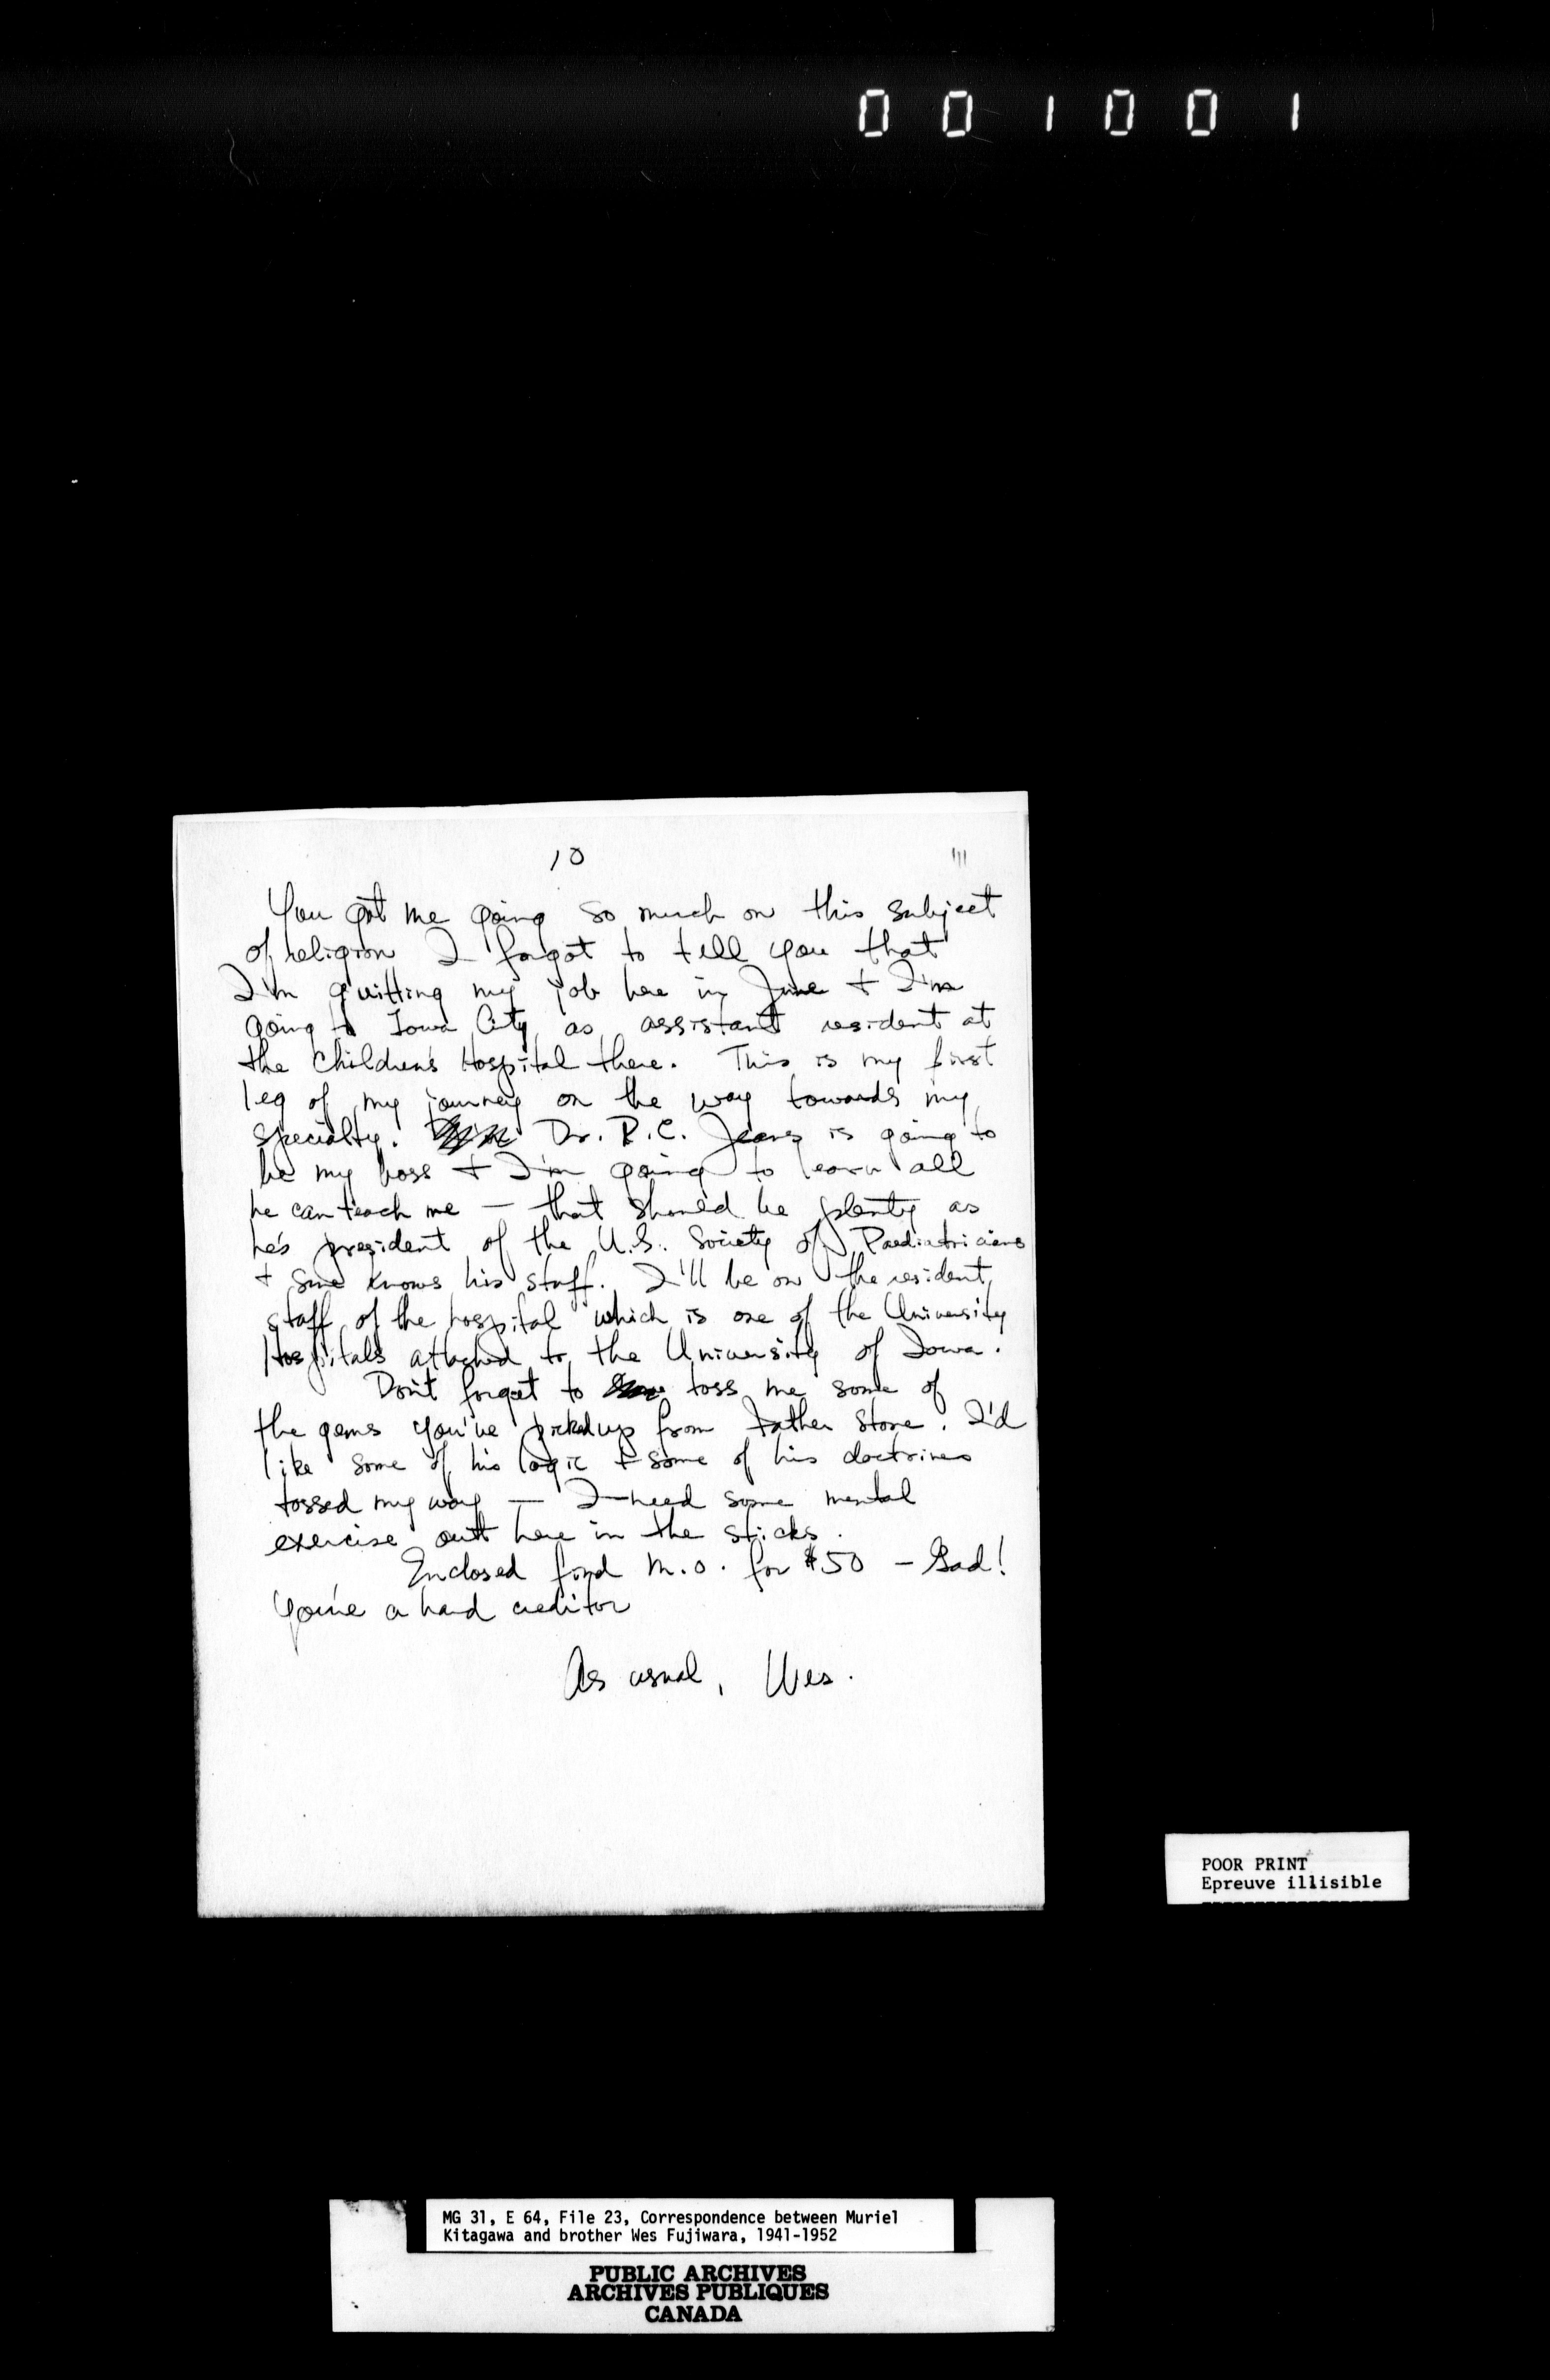 001001
10
111
You got me going so much on this subject
of religion I forgot to tell you that
I'm quitting my job here in June + I'm
going to Iowa City as assistant resident at
the Children's Hospital there. This is my first
leg of my journey on the way towards my
specialty. Dr. P.C. Jeans is going to
be my boss + I'm going to learn all
he can teach me — that should be plenty as
he's president of the U.S. Society of Paediatricians
+ sure knows his stuff. I'll be on the resident
staff of the hospital which is one of the University
Hospitals attached to the University of Iowa.
Don't forget to toss me some of
the gems you've picked up from Father Stone. I'd
like some of his logic + some of his doctrines
tossed my way — I need some mental
exercise out here in the sticks.
Enclosed find M.O. for $50 — Gad!
You're a hard creditor
As usual, Wes.
POOR PRINT
Epreuve illisible
MG 31, E 64, File 23, Correspondence between Muriel
Kitagawa and brother Wes Fujiwara, 1941-1952
PUBLIC ARCHIVES
ARCHIVES PUBLIQUES
CANADA